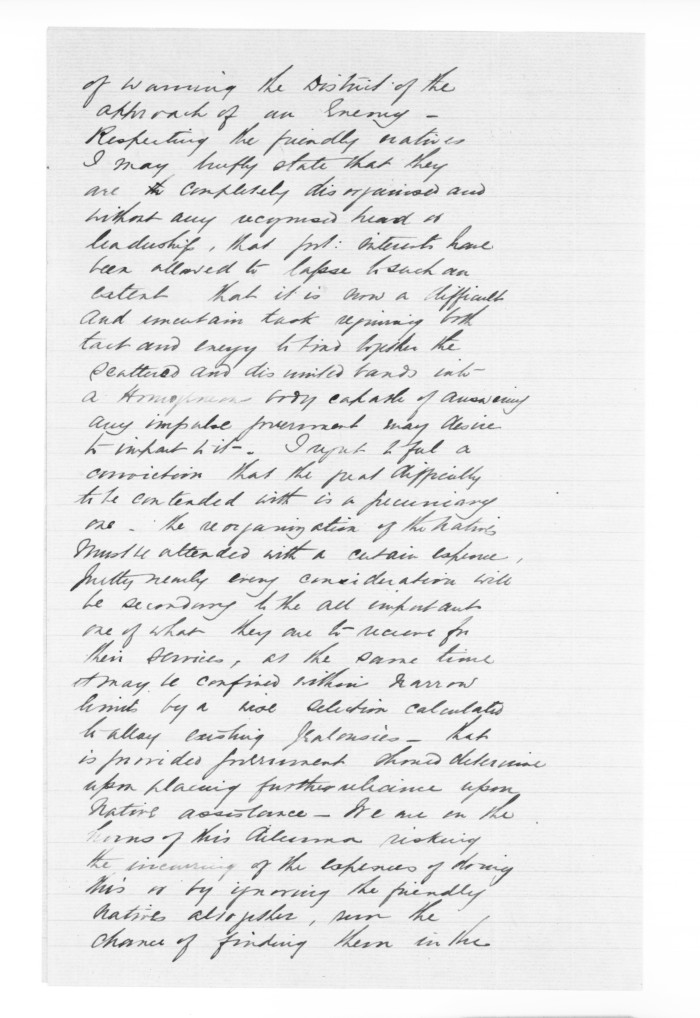 of warning the District of the
approach of an Enemy –
Respecting the friendly natives
I may briefly state that they
are completely disorganised and
without any recognised head or
leadership, that interests have
been allowed to lapse to such an
extent that it is now a difficult
and uncertain task requiring both
tact and energy to bind together the
scattered and disunited bands into
a body capable of answering
any impulse government may desire
to impart to it –. I regret to feel a
conviction that the great difficulty
to be contended with is a pecuniary
one – the reorganization of the Natives
Must be attended with a certain expense,
pretty nearly every consideration will
be secondary to the all important
one of what they are to recieve for
their services, at the same time
it may be confined within narrow
limits by a wise selection calculated
to allay existing Jealousies – that
is provided government should determine
upon placing further reliance upon
Native assistance – We are on the
horns of this dilemma risking
the incurring of the expenses of doing
this or by ignoring the friendly
Natives altogether, run the
chance of finding them in the